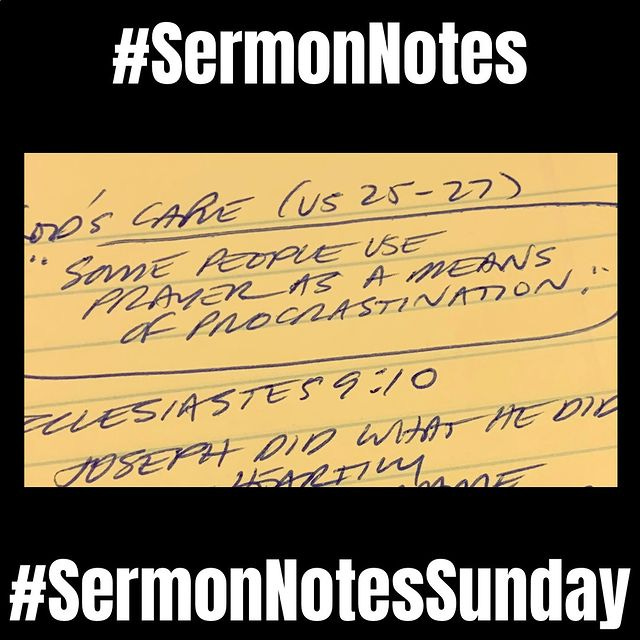 #SermonNotes
OD'S CARE (VS 25-27)
"SOME PEOPLE USE
PRAYER AS A MEANS
OF PROCRASTINATION."
CCLESIASTES 9:10
JOSEPH DID WHAT HE DID
HEARTILY
#SermonNotesSunday